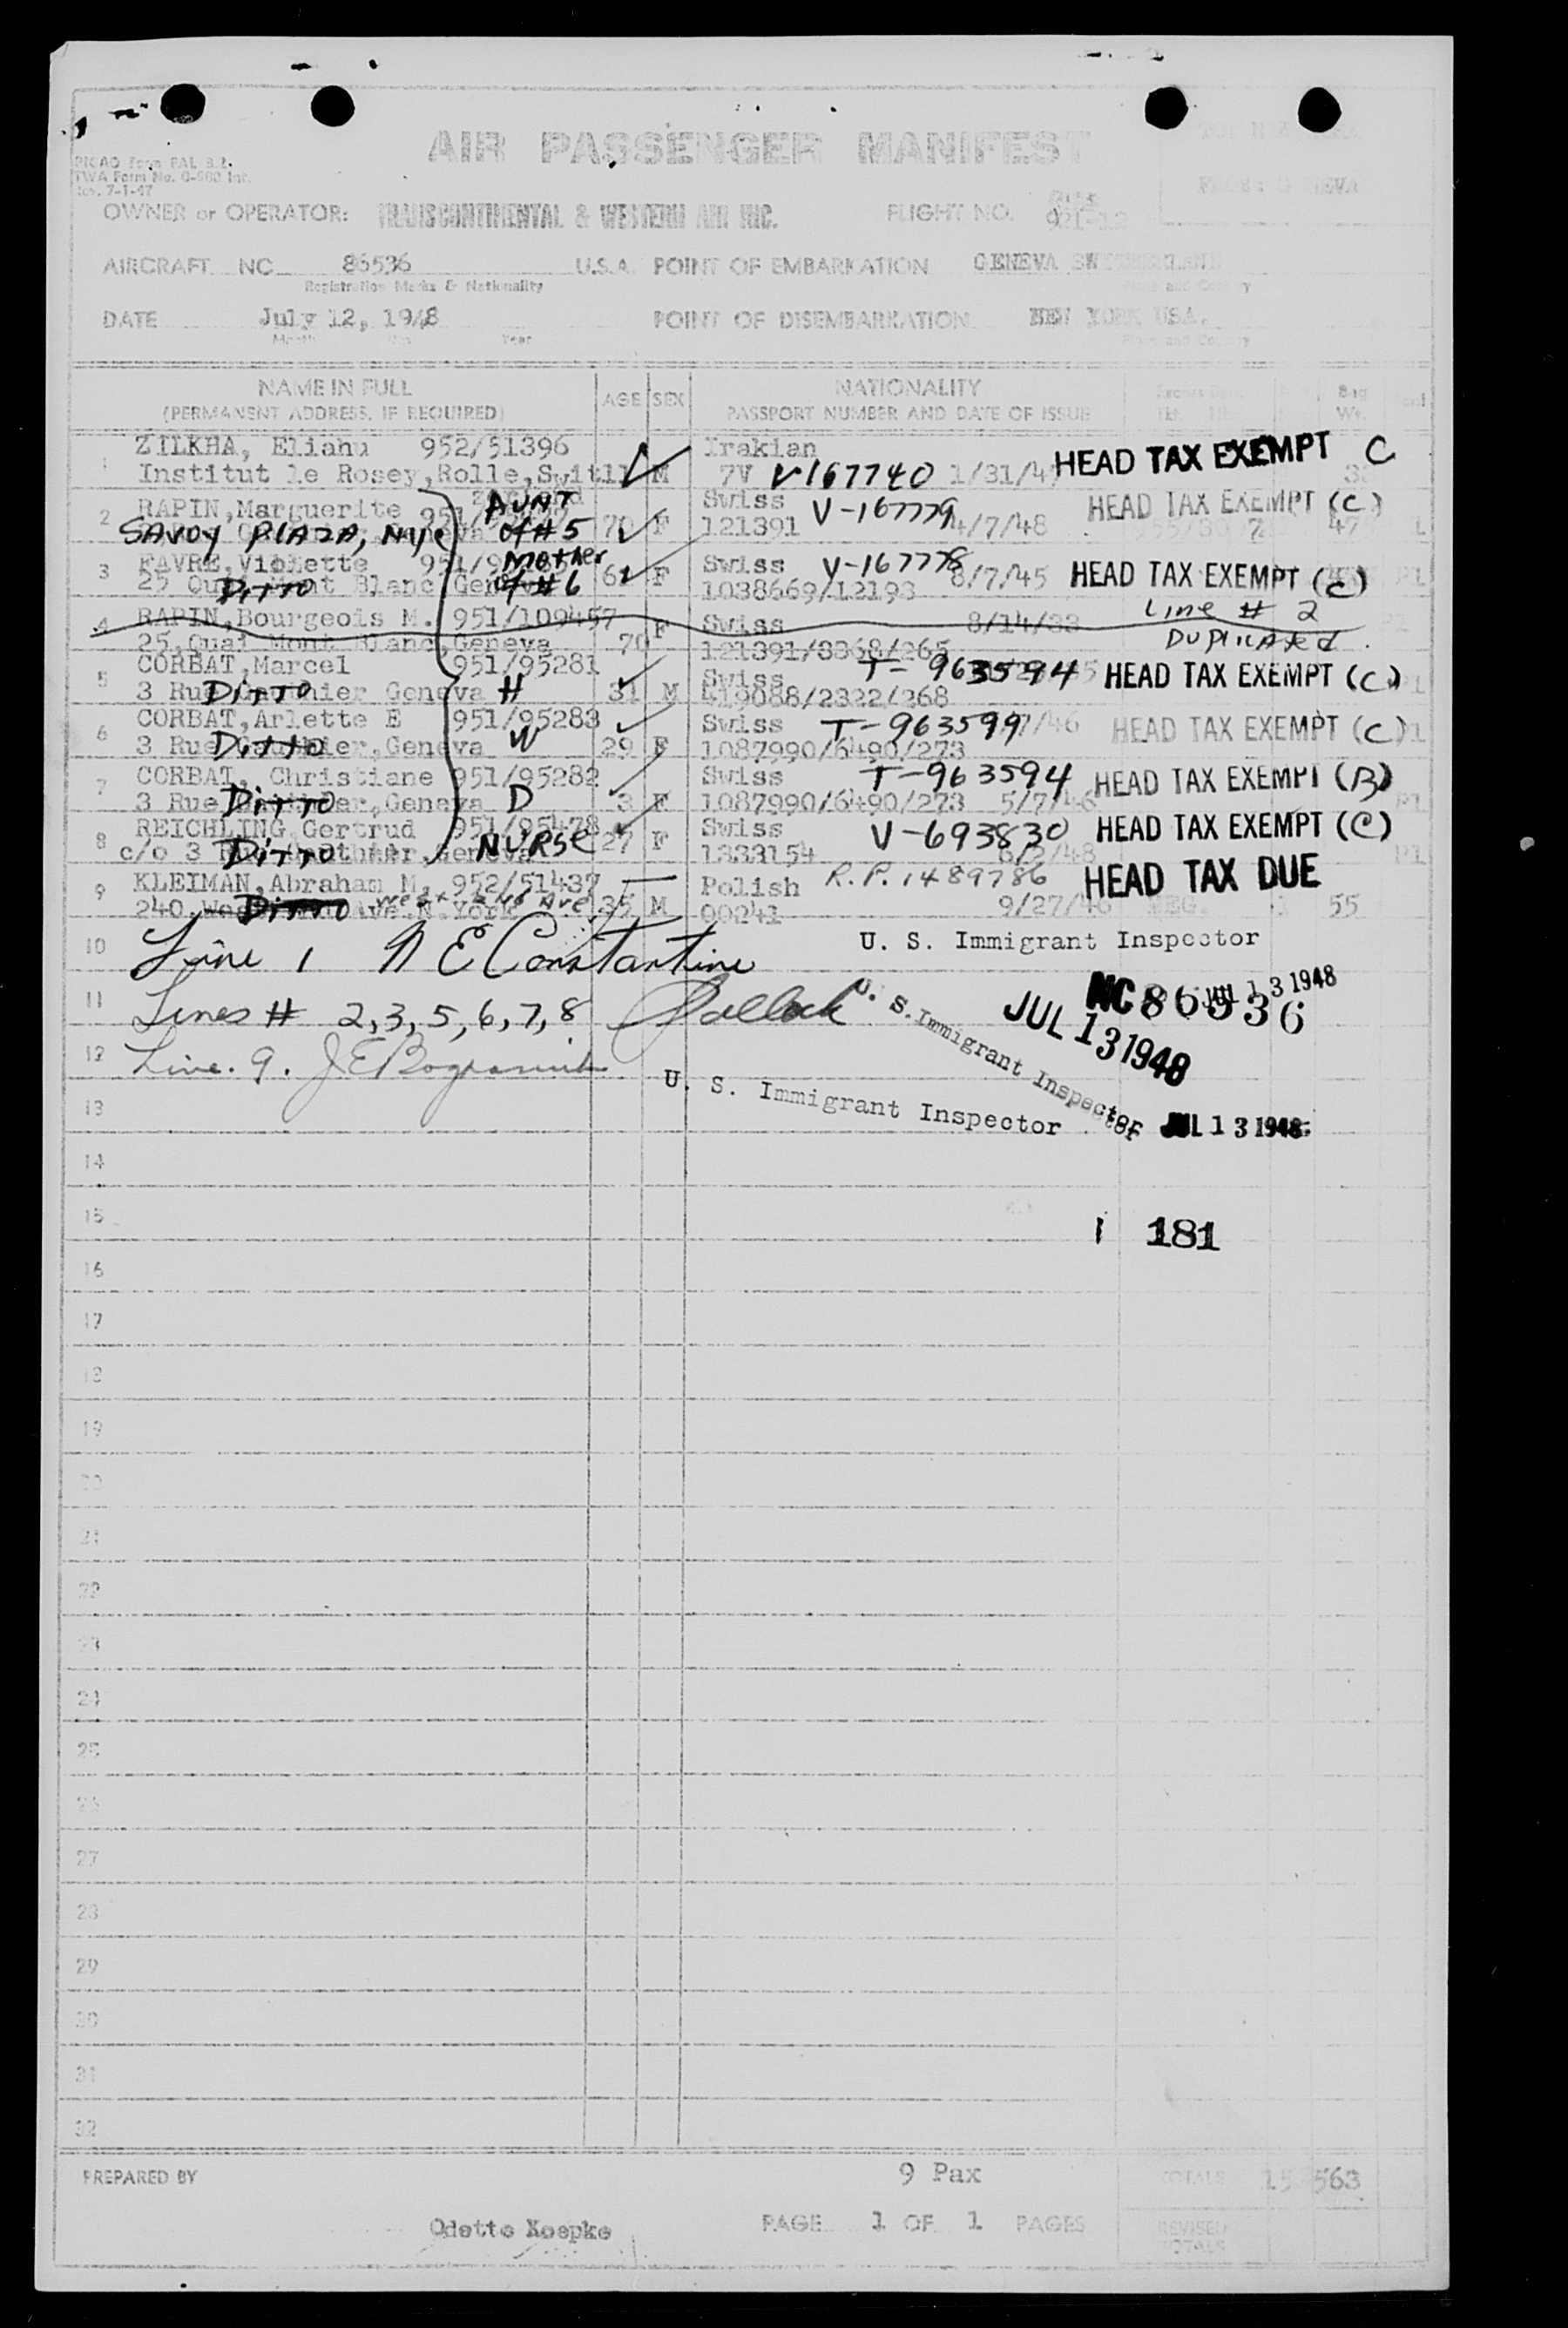 AIR PASSENGER MANIFEST
PICAO Form FAL 3.2.
TWA Form No. 0-900 Int.
Rev. 7-1-47
FROM: GENEVA
OWNER or OPERATOR: TRANSCONTINENTAL & WESTERN AIR INC. FLIGHT NO. 921-12
AIRCRAFT NC 86536 U.S.A. POINT OF EMBARKATION GENEVA SWITZERLAND
Registration Marks & Nationality
DATE July 12, 1948 POINT OF DISEMBARKATION NEW YORK USA.
Month Year Place and Country
NAME IN FULL AGE SEX NATIONALITY Bag
(PERMANENT ADDRESS, IF REQUIRED) PASSPORT NUMBER AND DATE OF ISSUE Wt.
ZILKHA, Eliahu 952/51396 Irakian HEAD TAX EXEMPT C
1 Institut le Rosey,Rolle,Swit M 7V V167740 1/31/4
RAPIN,Marguerite AUNT Swiss V-167779 HEAD TAX EXEMPT (C)
2 SAVOY PLAZA, NYC of #5 70 F 121391 4/7/48 47
FAVRE,Violette Mother Swiss V-167778 HEAD TAX EXEMPT (C)
3 25 Quai Mont Blanc,Geneva Ditto of #6 F 1038669/12193 8/7/45
RAPIN,Bourgeois M. 951/109457 F Swiss 8/14/33 Line # 2
4 25,Quai Mont Blanc,Geneva 70 121391/3368/265 Duplicated.
5 CORBAT,Marcel 951/95281 Swiss T-963594 HEAD TAX EXEMPT (C)
3 Rue Geneva Ditto H 31 M 419088/2322/268
CORBAT,Arlette E 951/95283 Swiss T-963599 /46 HEAD TAX EXEMPT (C)
6 3 Rue Gauthier,Geneva Ditto W 29 F 1087990/6490/273
CORBAT, Christiane 951/95282 Swiss T-963594 HEAD TAX EXEMPT (B)
7 3 Rue ,Geneva Ditto D 3 F 1087990/6490/273 5/7/46
REICHLING,Gertrud 951/95478 Swiss V-693830 HEAD TAX EXEMPT (C)
8 c/o 3 Geneva Ditto NURSE 27 F 1333154 6/2/48
KLEIMAN,Abraham M. 952/51437 Polish R.P. 1489786 HEAD TAX DUE
9 240,West Ave.N.York Ditto West End Ave 35 M 00241 9/27/46 55
10 Line 1 N E Constantine U. S. Immigrant Inspector
JUL 13 1948
11 Lines # 2,3,5,6,7,8 Pollack U. S. Immigrant Inspector NC86536
JUL 13 1948
12 Line. 9.
U. S. Immigrant Inspector JUL 13 1948
13
14
15 1 181
16
17
18
19
20
21
22
23
24
25
26
27
28
29
30
31
32
PREPARED BY 9 Pax TOTALS 563
Odette Koepke PAGE 1 OF 1 PAGES REVISED
TOTALS